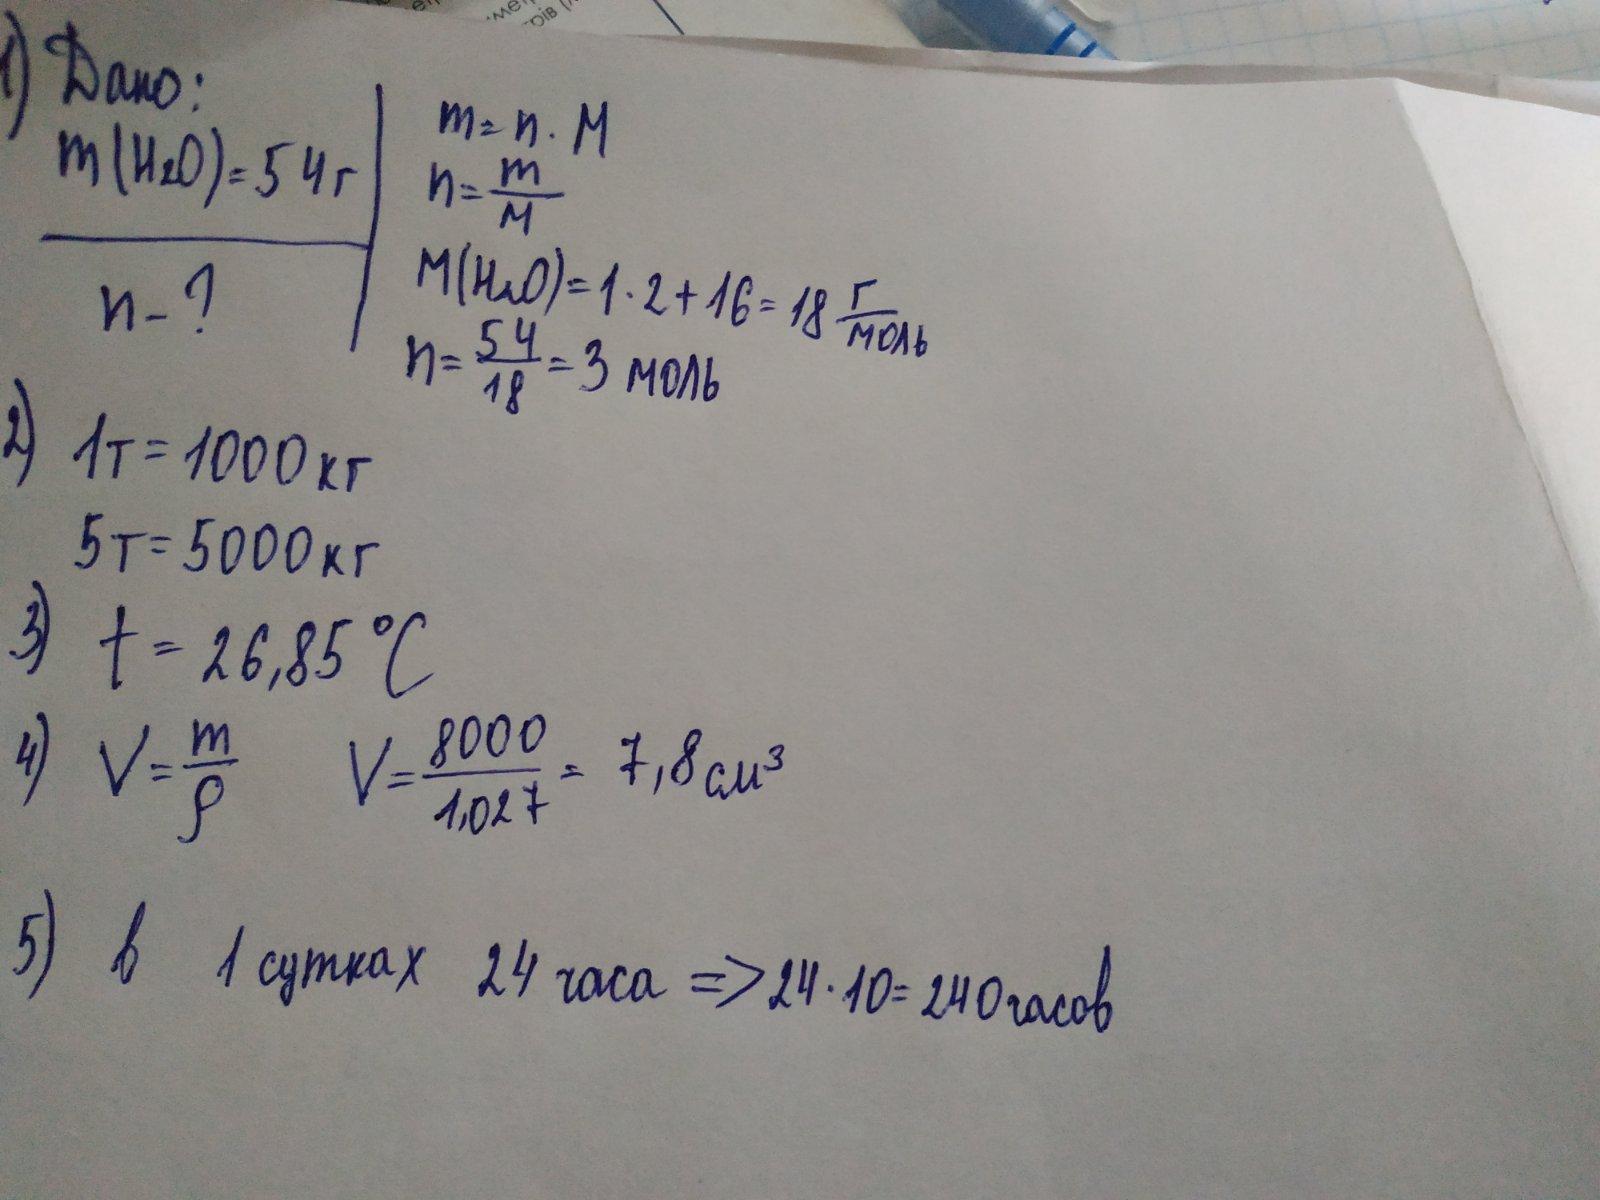 1) Дано:
m(H₂O)=54г
n-?
m=n·M
n=m/M
M(H₂O)=1·2+16=18 г/моль
n=54/18=3 моль
2) 1т=1000кг
5т=5000кг
3) t=26,85°C
4) V=m/ρ V=8000/1,027=7,8см³
5) в 1 сутках 24 часа => 24·10=240часов